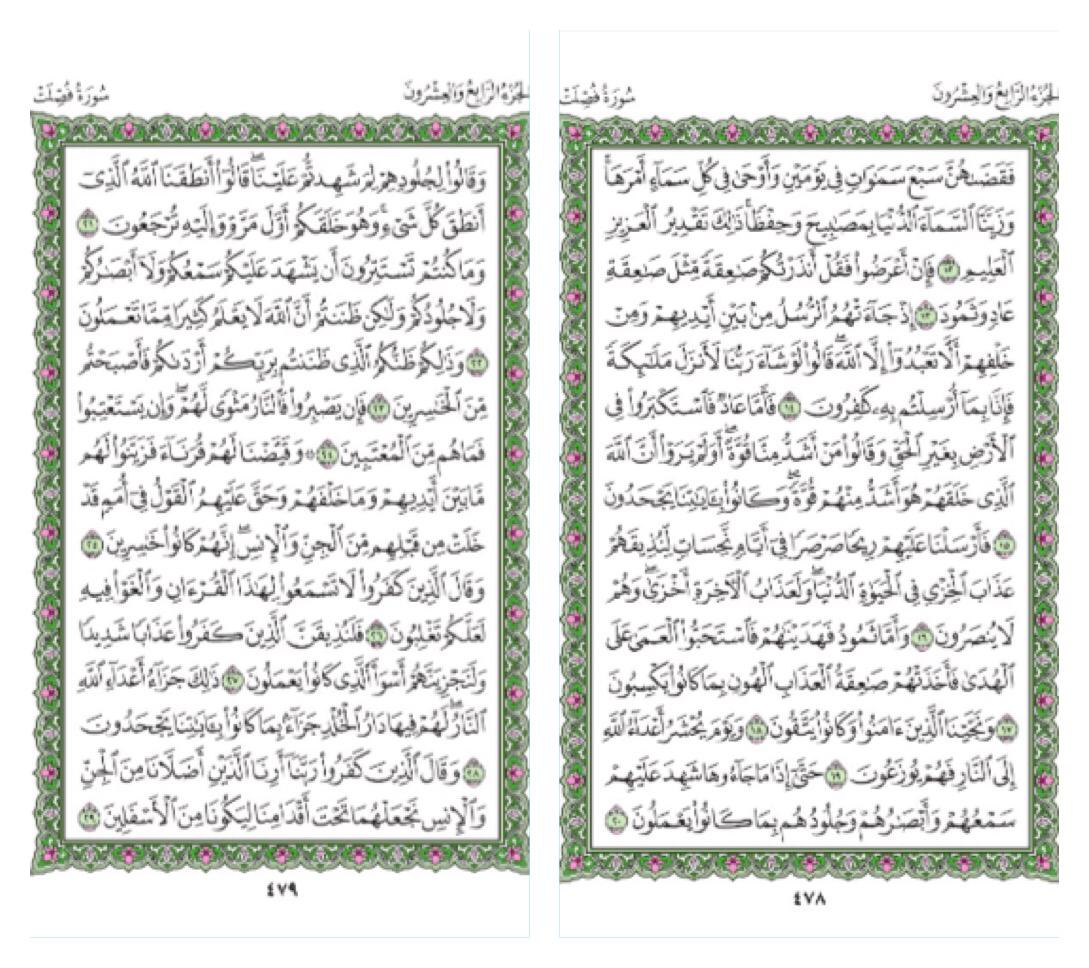 الجزء الرابع والعشرون
سورة فصلت
فَقَضَىٰهُنَّ سَبْعَ سَمَٰوَاتٍ فِى يَوْمَيْنِ وَأَوْحَىٰ فِى كُلِّ سَمَآءٍ أَمْرَهَا ۚ
وَزَيَّنَّا ٱلسَّمَآءَ ٱلدُّنْيَا بِمَصَٰبِيحَ وَحِفْظًا ۚ ذَٰلِكَ تَقْدِيرُ ٱلْعَزِيزِ
ٱلْعَلِيمِ ١٢ فَإِنْ أَعْرَضُوا۟ فَقُلْ أَنذَرْتُكُمْ صَٰعِقَةً مِّثْلَ صَٰعِقَةِ
عَادٍ وَثَمُودَ ١٣ إِذْ جَآءَتْهُمُ ٱلرُّسُلُ مِنۢ بَيْنِ أَيْدِيهِمْ وَمِنْ
خَلْفِهِمْ أَلَّا تَعْبُدُوٓا۟ إِلَّا ٱللَّهَ ۖ قَالُوا۟ لَوْ شَآءَ رَبُّنَا لَأَنزَلَ مَلَٰٓئِكَةً
فَإِنَّا بِمَآ أُرْسِلْتُم بِهِۦ كَٰفِرُونَ ١٤ فَأَمَّا عَادٌ فَٱسْتَكْبَرُوا۟ فِى
ٱلْأَرْضِ بِغَيْرِ ٱلْحَقِّ وَقَالُوا۟ مَنْ أَشَدُّ مِنَّا قُوَّةً ۖ أَوَلَمْ يَرَوْا۟ أَنَّ ٱللَّهَ
ٱلَّذِى خَلَقَهُمْ هُوَ أَشَدُّ مِنْهُمْ قُوَّةً ۖ وَكَانُوا۟ بِـَٔايَٰتِنَا يَجْحَدُونَ
١٥ فَأَرْسَلْنَا عَلَيْهِمْ رِيحًا صَرْصَرًا فِىٓ أَيَّامٍ نَّحِسَاتٍ لِّنُذِيقَهُمْ
عَذَابَ ٱلْخِزْىِ فِى ٱلْحَيَوٰةِ ٱلدُّنْيَا ۖ وَلَعَذَابُ ٱلْـَٔاخِرَةِ أَخْزَىٰ ۖ وَهُمْ
لَا يُنصَرُونَ ١٦ وَأَمَّا ثَمُودُ فَهَدَيْنَٰهُمْ فَٱسْتَحَبُّوا۟ ٱلْعَمَىٰ عَلَى
ٱلْهُدَىٰ فَأَخَذَتْهُمْ صَٰعِقَةُ ٱلْعَذَابِ ٱلْهُونِ بِمَا كَانُوا۟ يَكْسِبُونَ
١٧ وَنَجَّيْنَا ٱلَّذِينَ ءَامَنُوا۟ وَكَانُوا۟ يَتَّقُونَ ١٨ وَيَوْمَ يُحْشَرُ أَعْدَآءُ ٱللَّهِ
إِلَى ٱلنَّارِ فَهُمْ يُوزَعُونَ ١٩ حَتَّىٰٓ إِذَا مَا جَآءُوهَا شَهِدَ عَلَيْهِمْ
سَمْعُهُمْ وَأَبْصَٰرُهُمْ وَجُلُودُهُم بِمَا كَانُوا۟ يَعْمَلُونَ ٢٠
٤٧٨
الجزء الرابع والعشرون
سورة فصلت
وَقَالُوا۟ لِجُلُودِهِمْ لِمَ شَهِدتُّمْ عَلَيْنَا ۖ قَالُوٓا۟ أَنطَقَنَا ٱللَّهُ ٱلَّذِىٓ
أَنطَقَ كُلَّ شَىْءٍ وَهُوَ خَلَقَكُمْ أَوَّلَ مَرَّةٍ وَإِلَيْهِ تُرْجَعُونَ ٢١
وَمَا كُنتُمْ تَسْتَتِرُونَ أَن يَشْهَدَ عَلَيْكُمْ سَمْعُكُمْ وَلَآ أَبْصَٰرُكُمْ
وَلَا جُلُودُكُمْ وَلَٰكِن ظَنَنتُمْ أَنَّ ٱللَّهَ لَا يَعْلَمُ كَثِيرًا مِّمَّا تَعْمَلُونَ
٢٢ وَذَٰلِكُمْ ظَنُّكُمُ ٱلَّذِى ظَنَنتُم بِرَبِّكُمْ أَرْدَىٰكُمْ فَأَصْبَحْتُم
مِّنَ ٱلْخَٰسِرِينَ ٢٣ فَإِن يَصْبِرُوا۟ فَٱلنَّارُ مَثْوًى لَّهُمْ ۖ وَإِن يَسْتَعْتِبُوا۟
فَمَا هُم مِّنَ ٱلْمُعْتَبِينَ ٢٤ ۞ وَقَيَّضْنَا لَهُمْ قُرَنَآءَ فَزَيَّنُوا۟ لَهُم
مَّا بَيْنَ أَيْدِيهِمْ وَمَا خَلْفَهُمْ وَحَقَّ عَلَيْهِمُ ٱلْقَوْلُ فِىٓ أُمَمٍ قَدْ
خَلَتْ مِن قَبْلِهِم مِّنَ ٱلْجِنِّ وَٱلْإِنسِ ۖ إِنَّهُمْ كَانُوا۟ خَٰسِرِينَ ٢٥
وَقَالَ ٱلَّذِينَ كَفَرُوا۟ لَا تَسْمَعُوا۟ لِهَٰذَا ٱلْقُرْءَانِ وَٱلْغَوْا۟ فِيهِ
لَعَلَّكُمْ تَغْلِبُونَ ٢٦ فَلَنُذِيقَنَّ ٱلَّذِينَ كَفَرُوا۟ عَذَابًا شَدِيدًا
وَلَنَجْزِيَنَّهُمْ أَسْوَأَ ٱلَّذِى كَانُوا۟ يَعْمَلُونَ ٢٧ ذَٰلِكَ جَزَآءُ أَعْدَآءِ ٱللَّهِ
ٱلنَّارُ ۖ لَهُمْ فِيهَا دَارُ ٱلْخُلْدِ ۖ جَزَآءًۢ بِمَا كَانُوا۟ بِـَٔايَٰتِنَا يَجْحَدُونَ
٢٨ وَقَالَ ٱلَّذِينَ كَفَرُوا۟ رَبَّنَآ أَرِنَا ٱلَّذَيْنِ أَضَلَّانَا مِنَ ٱلْجِنِّ
وَٱلْإِنسِ نَجْعَلْهُمَا تَحْتَ أَقْدَامِنَا لِيَكُونَا مِنَ ٱلْأَسْفَلِينَ ٢٩
٤٧٩